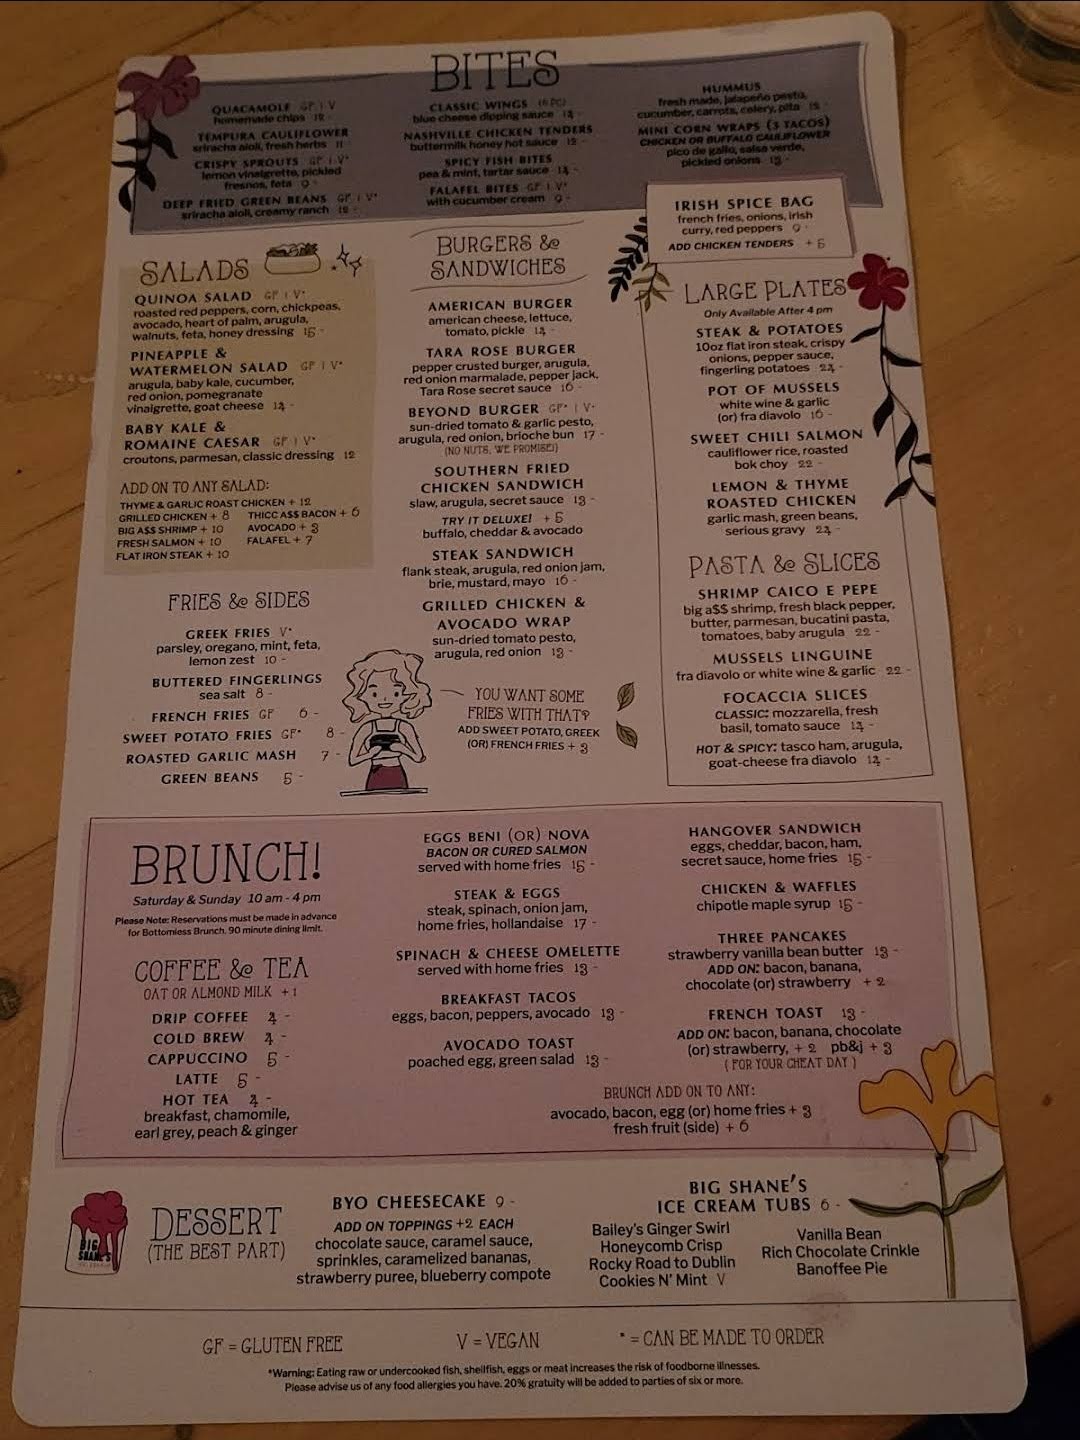 BITES
GUACAMOLE GF | V
homemade chips 12 -
TEMPURA CAULIFLOWER
sriracha aioli, fresh herbs 11 -
CRISPY SPROUTS GF | V*
lemon vinaigrette, pickled
fresnos, feta 9 -
DEEP FRIED GREEN BEANS GF | V*
sriracha aioli, creamy ranch
CLASSIC WINGS (6 PC)
blue cheese dipping sauce
NASHVILLE CHICKEN TENDERS
buttermilk honey hot sauce
SPICY FISH BITES
pea & mint, tartar sauce 14 -
FALAFEL BITES GF | V*
with cucumber cream 9 -
HUMMUS
fresh made, jalapeño pesto,
cucumber, carrots, celery, pita
MINI CORN WRAPS (3 TACOS)
CHICKEN OR BUFFALO CAULIFLOWER
pico de gallo, salsa verde,
pickled onions 13 -
IRISH SPICE BAG
french fries, onions, irish
curry, red peppers 9 -
ADD CHICKEN TENDERS + 6
SALADS
QUINOA SALAD GF | V*
roasted red peppers, corn, chickpeas,
avocado, heart of palm, arugula,
walnuts, feta, honey dressing 15 -
PINEAPPLE &
WATERMELON SALAD GF | V*
arugula, baby kale, cucumber,
red onion, pomegranate
vinaigrette, goat cheese 14 -
BABY KALE &
ROMAINE CAESAR GF | V*
croutons, parmesan, classic dressing 12
ADD ON TO ANY SALAD:
THYME & GARLIC ROAST CHICKEN + 12
GRILLED CHICKEN + 8
BIG A$$ SHRIMP + 10
FRESH SALMON + 10
FLAT IRON STEAK + 10
THICC A$$ BACON + 6
AVOCADO + 3
FALAFEL + 7
FRIES & SIDES
GREEK FRIES V*
parsley, oregano, mint, feta,
lemon zest 10 -
BUTTERED FINGERLINGS
sea salt 8 -
FRENCH FRIES GF 6 -
SWEET POTATO FRIES GF* 8 -
ROASTED GARLIC MASH 7 -
GREEN BEANS 5 -
BURGERS &
SANDWICHES
AMERICAN BURGER
american cheese, lettuce,
tomato, pickle 14 -
TARA ROSE BURGER
pepper crusted burger, arugula,
red onion marmalade, pepper jack,
Tara Rose secret sauce 16 -
BEYOND BURGER GF* | V*
sun-dried tomato & garlic pesto,
arugula, red onion, brioche bun 17 -
(NO NUTS, WE PROMISE!)
SOUTHERN FRIED
CHICKEN SANDWICH
slaw, arugula, secret sauce 13 -
TRY IT DELUXE! + 5
buffalo, cheddar & avocado
STEAK SANDWICH
flank steak, arugula, red onion jam,
brie, mustard, mayo 16 -
GRILLED CHICKEN &
AVOCADO WRAP
sun-dried tomato pesto,
arugula, red onion 13 -
YOU WANT SOME
FRIES WITH THAT?
ADD SWEET POTATO, GREEK
(OR) FRENCH FRIES + 3
LARGE PLATES
Only Available After 4 pm
STEAK & POTATOES
10oz flat iron steak, crispy
onions, pepper sauce,
fingerling potatoes 24 -
POT OF MUSSELS
white wine & garlic
(or) fra diavolo 16 -
SWEET CHILI SALMON
cauliflower rice, roasted
bok choy 22 -
LEMON & THYME
ROASTED CHICKEN
garlic mash, green beans,
serious gravy 24 -
PASTA & SLICES
SHRIMP CAICO E PEPE
big a$$ shrimp, fresh black pepper,
butter, parmesan, bucatini pasta,
tomatoes, baby arugula 22 -
MUSSELS LINGUINE
fra diavolo or white wine & garlic 22 -
FOCACCIA SLICES
CLASSIC: mozzarella, fresh
basil, tomato sauce 14 -
HOT & SPICY: tasco ham, arugula,
goat-cheese fra diavolo 14 -
BRUNCH!
Saturday & Sunday 10 am - 4 pm
Please Note: Reservations must be made in advance
for Bottomless Brunch. 90 minute dining limit.
COFFEE & TEA
OAT OR ALMOND MILK +1
DRIP COFFEE 4 -
COLD BREW 4 -
CAPPUCCINO 5 -
LATTE 5 -
HOT TEA 4 -
breakfast, chamomile,
earl grey, peach & ginger
EGGS BENI (OR) NOVA
BACON OR CURED SALMON
served with home fries 15 -
STEAK & EGGS
steak, spinach, onion jam,
home fries, hollandaise 17 -
SPINACH & CHEESE OMELETTE
served with home fries 13 -
BREAKFAST TACOS
eggs, bacon, peppers, avocado 13 -
AVOCADO TOAST
poached egg, green salad 13 -
HANGOVER SANDWICH
eggs, cheddar, bacon, ham,
secret sauce, home fries 15 -
CHICKEN & WAFFLES
chipotle maple syrup 15 -
THREE PANCAKES
strawberry vanilla bean butter 13 -
ADD ON: bacon, banana,
chocolate (or) strawberry + 2
FRENCH TOAST 13 -
ADD ON: bacon, banana, chocolate
(or) strawberry, + 2 pb&j + 3
( FOR YOUR CHEAT DAY )
BRUNCH ADD ON TO ANY:
avocado, bacon, egg (or) home fries + 3
fresh fruit (side) + 6
BIG
SHANE'S
DESSERT
(THE BEST PART)
BYO CHEESECAKE 9 -
ADD ON TOPPINGS +2 EACH
chocolate sauce, caramel sauce,
sprinkles, caramelized bananas,
strawberry puree, blueberry compote
BIG SHANE'S
ICE CREAM TUBS 6 -
Bailey's Ginger Swirl
Honeycomb Crisp
Rocky Road to Dublin
Cookies N' Mint V
Vanilla Bean
Rich Chocolate Crinkle
Banoffee Pie
GF = GLUTEN FREE V = VEGAN * = CAN BE MADE TO ORDER
*Warning: Eating raw or undercooked fish, shellfish, eggs or meat increases the risk of foodborne illnesses.
Please advise us of any food allergies you have. 20% gratuity will be added to parties of six or more.